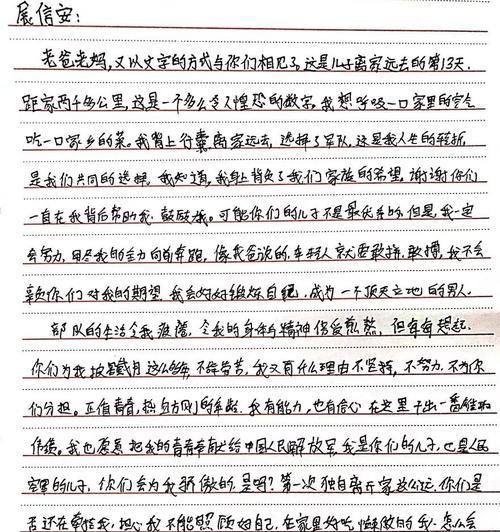 展信安:
老爸老妈,又以文字的方式与你们相见了,这是儿子离家远去的第13天.
距家两千多公里,这是一个多么令人惶恐的数字,我想呼吸一口家里的空气
吃一口家乡的菜。我背上行囊离家远去,选择了军队,这是我人生的转折,
是我们共同的选择,我知道,我身上背负了我们家族的希望,谢谢你们
一直在我背后帮助我、鼓励我。可能你们的儿子不是最优秀的,但是,我一定
会努力,用尽我的全力向前奔跑,像我爸说的,年轻人就要敢拼,敢搏,我不会
辜负你们对我的期望,我会好好锻炼自己,成为一个顶天立地的男人。
部队的生活令我疲惫,令我的身体与精神倍受煎熬,但每每想起
你们为我披星戴月这么多年,不辞辛苦,我又有什么理由不坚强,不努力,不为你
们分担。正值青春,热血方刚的年龄,我有能力,也有信心在这里干出一番
作绩。我也愿意把我的青春奉献给中国人民解放军,我是你们的儿子,也是人民
的儿子,你们会为我骄傲的,是吗?第一次独自离开家这么远,你们是
否还在牵挂我,担心我不能照顾好自己,在家里好吃懒做的我,怎么会